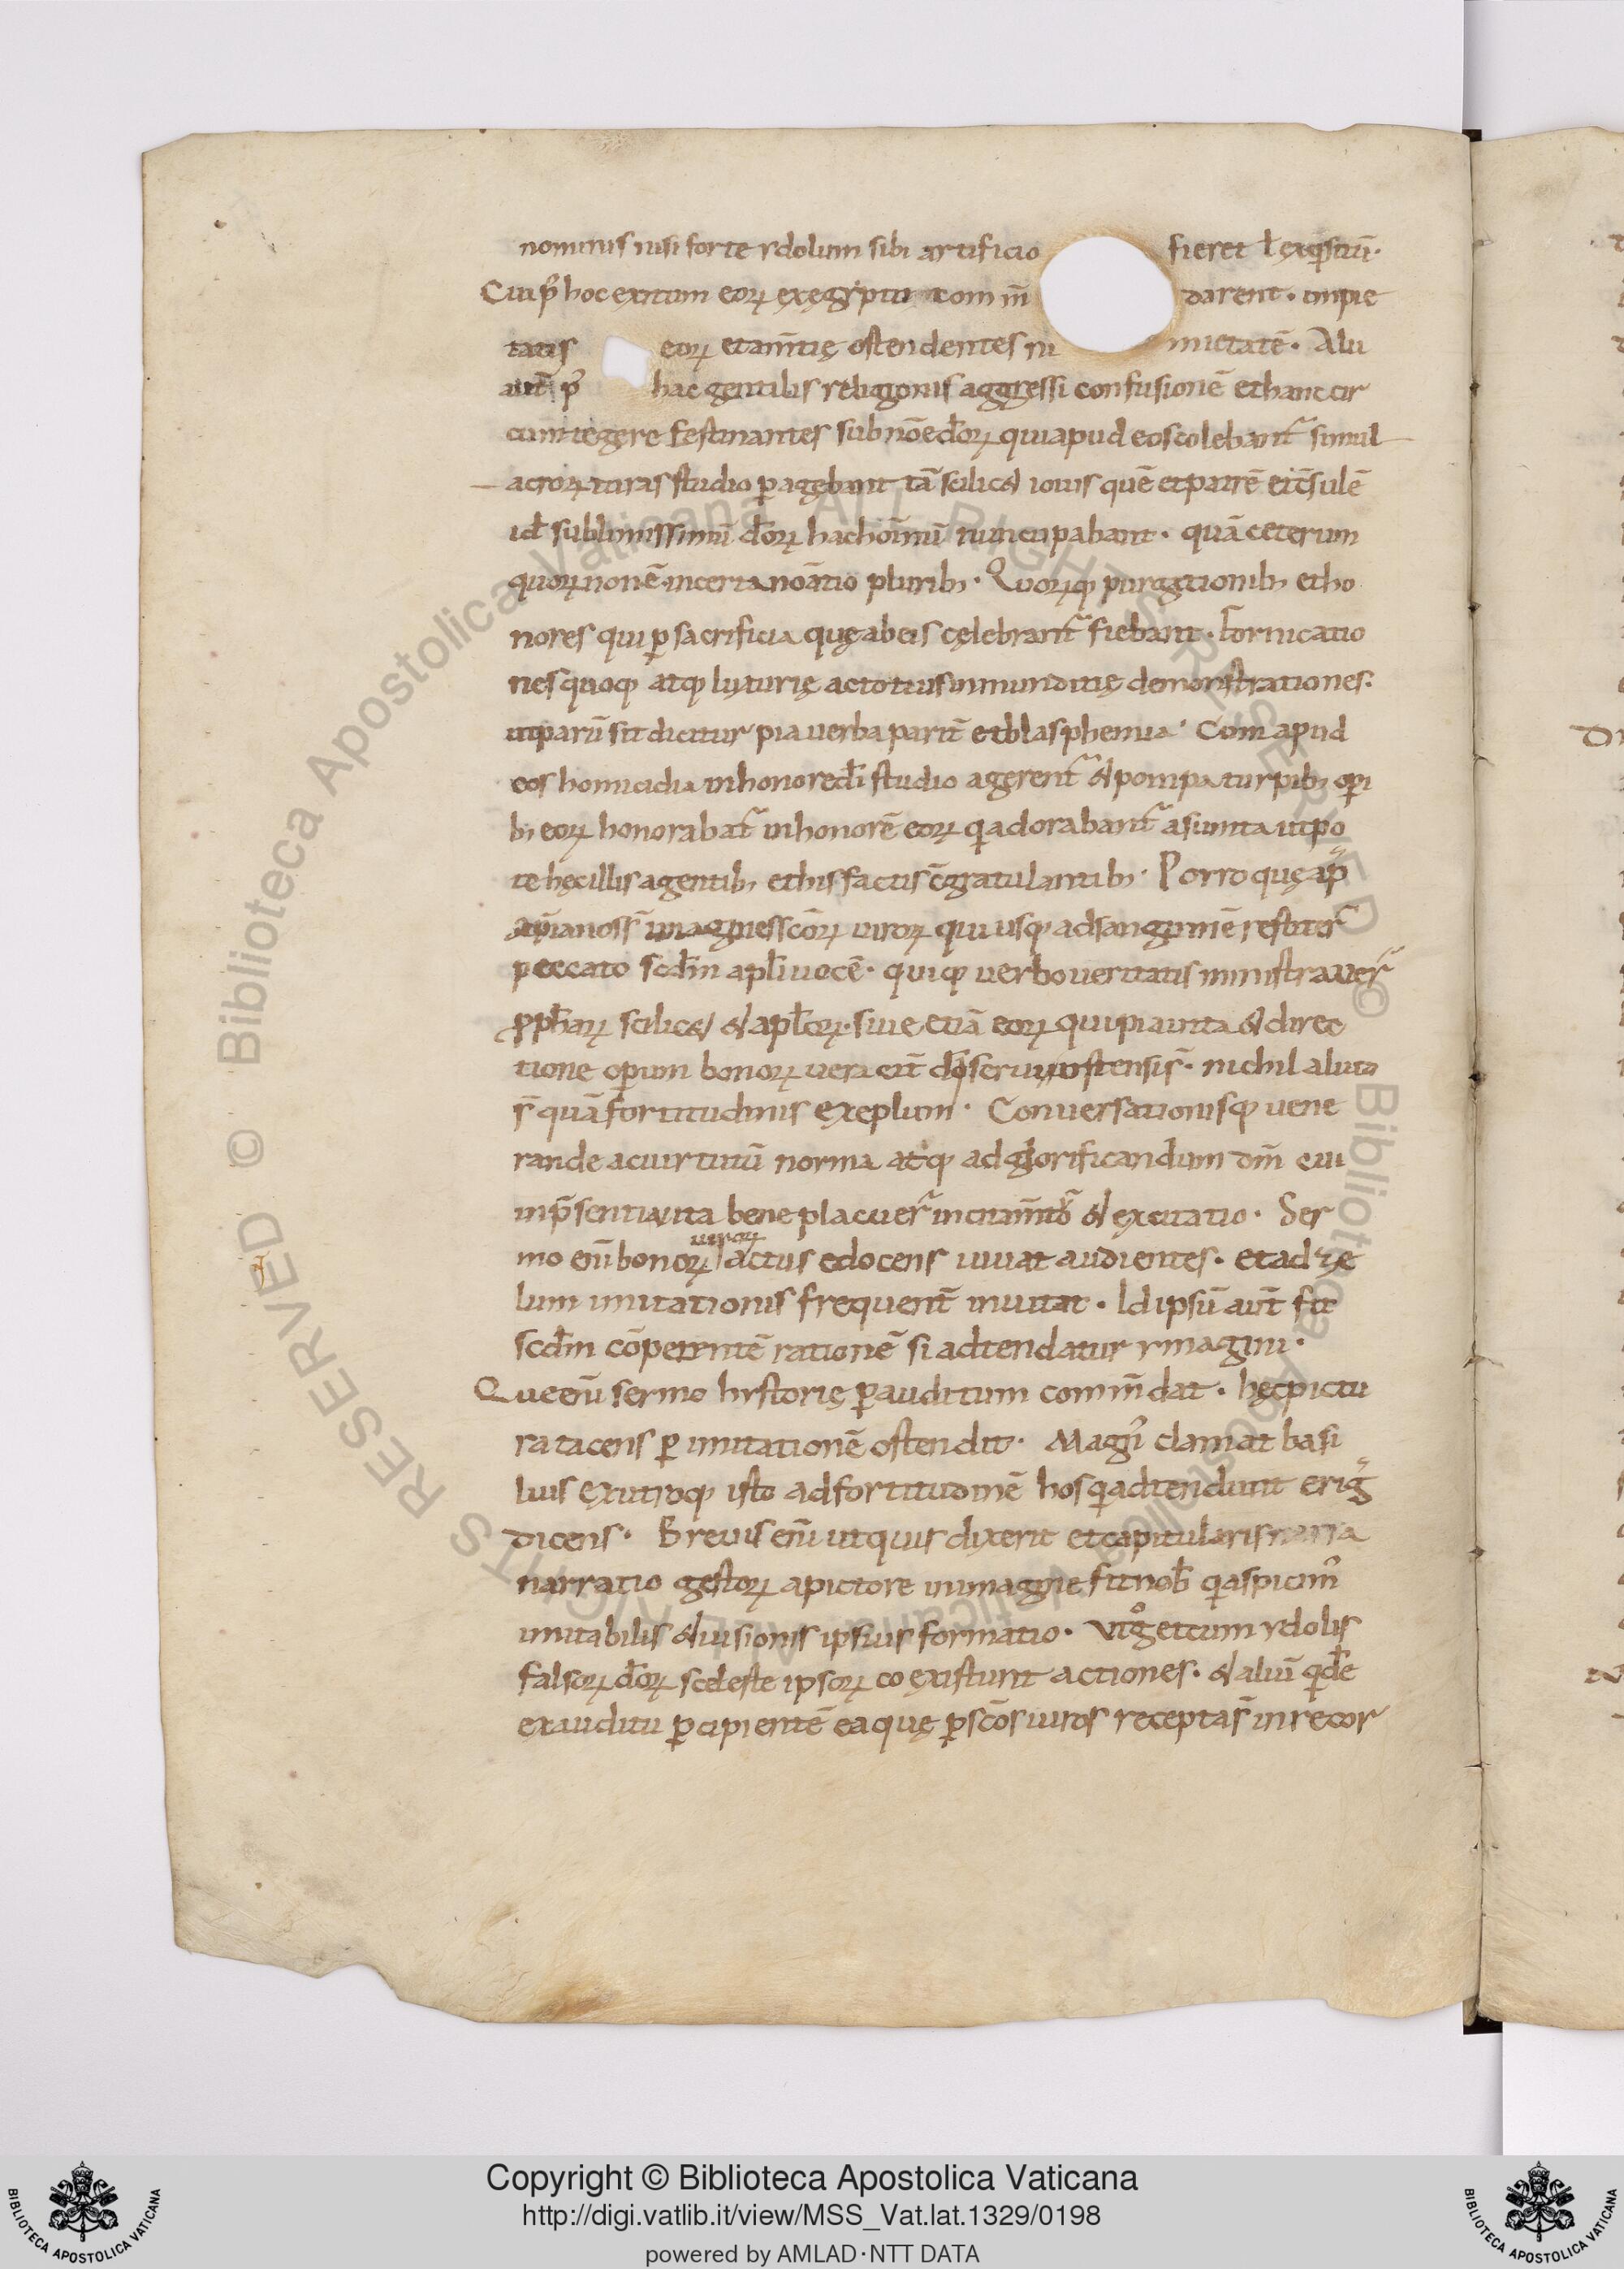 nominis nisi forte ydolum sibi artificio fieret ł exq̃situ̅.
Cui p᷒ hoc exitum eoꝝ ex ęgypto com m̅ darent. impie
tatis eoꝝ et am̅tię ostendentes ni mietatē. Alii
aut̅ p᷒ hac gentilis religionis aggressi confusionē et hanc cir
cumtegere festinantes sub nōe deoꝝ qui apud eos colebant᷒ simul
acroꝝ turas studio ꝑagebant tā scilic& iouis quē et patrē eit̅ sulē
id̅ sublimissimū d̅oꝝ hac hoīmū nuncupabant. quā ceterum
quoꝝ non ē incerta noātio plurib; Quoꝝq; purgationib; et ho
nores qui ꝑ sacrificia quę ab eis cęlebrant᷒ fiebant. Fornicatio
nes quoq; atq; luxurię ac totius inmunditię demonstrationes.
ut parū sit dicitur pia uerba parit̅ et blasphemia. Com apud
eos homicidia in honore d̅i studio agerent᷒ & pompa turpib; oꝑi
b; eoꝝ honorabat᷒ in honorē eoꝝ q̃ adorabant᷒ asumta utpo
te hęc illis agentib; et his factis cōgratulantib;. Porro quę ap̃
xp̅ianos s̅ imagines sc̅oꝝ uiroꝝ qui usq; ad sanguinē restiter̃
peccato scd̅m apl̅i uocē. quiq; uerbo ueritatis ministrauer̃
ꝓph̅aꝝ scilic& & apl̅oꝝ. siue etiā eoꝝ qui pia uita & direc
tione oꝑum bonoꝝ uera eit̅ d̅o seruii ostensi s̅. nichil aliut
s̅ quā fortitudinis exeplum. Conuersationisq; uene
rande ac uirtutū norma atq; ad glorificandum dm̅ cui
in p̃senti uita bene placuer̃ incitam̅to & excitatio. Ser
mo eni̅ bonoꝝ
uiroꝝ
actus edocens iuuat audientes. et ad ze
lum imitationis frequent̅ inuitat. Id ipsū aut̅ fit
scd̅m cōpetentē rationē si adtendatur ymagini.
Que eni̅ sermo hystorię ꝑ auditum comm̅dat. hęc pictu
ra tacens ꝑ imitationē ostendit. Magn᷒ clamat basi
lius exutroq; isto ad fortitudinē hos q̃ adtendunt erig̃
dicens. Breuis eni̅ ut quis dixerit et capitularis narra
narratio gestoꝝ a pictore in imagine fit nob̅ q̃ aspicim᷒
imitabilis & uisionis ipsius formatio. Virg̊ et cum ydolis
falsoꝝ d̅oꝝ sceleste ipsoꝝ coexistunt actiones. & aliū qd̅e
ex auditu ꝑcipientē ea quę ꝑ sc̅os uiros recepta s̅ in recor